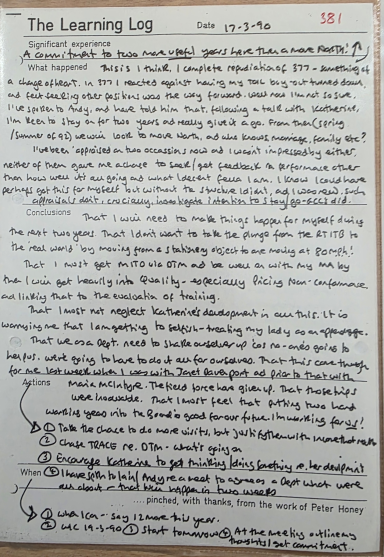 381
The Learning Log Date 17-3-90
Significant experience
A commitment to two more useful years here then a move NORTH!
What happened This is, I think, a complete repudiation of 377 - something of
a change of heart. In 377 I reacted against having my Tall boy put turned down,
and felt seeing other positions was the way forward. Well now I'm not so sure.
I've spoken to Andy, and have told him that, following a talk with Katherine,
I'm keen to stay on for two years and really give it a go. From then (spring
/summer of 92) we will look to move North, and who knows, marriage, family etc?
I've been appraised on two occasions now and I wasn't impressed by either,
neither of them gave me a chance to seek/get feedback re performance other
than how well it's all going and what a decent fella I am. I know I could have
perhaps got this for myself but without the structure I didn't, and I was new. Such
appraisals don't, crucially, investigate intention to stay/go
Conclusions That I will need to make things happen for myself during
the next two years. That I don't want to take the plunge from the RTITB to
the real world by moving from a stationary object to one moving at 80mph!
That I must get MITD via DTM and be well on with my MA by
then. I will get heavily into Quality - especially Pricing Non-conformance
and linking that to the evaluation of training.
That I must not neglect Katherine's development in all this. It is
worrying me that I am getting to selfish - treating my lady as an appendage.
That we as a Dept. need to shake ourselves up cos no-one's going to
help us. We're going to have to do it all for ourselves. That this came through
for me last week when I was with Janet Davenport and prior to that with
Actions Maria McIntyre. The field force have given up. That those trips
were invaluable. That I must feel that putting two hard
working years into the Board is good for our future. I'm working for us!
① Take the chance to do more visits, but justify them with more than
② Chase TRACE re. DTM - what's going on
③ Encourage Katherine to get thinking/doing something re. her development
When ④ I have spoken to Ian/May re a need to agree as a Dept what we're
all about - that will happen in two weeks
....pinched, with thanks, from the work of Peter Honey
① When I can - say 12 more this year.
② W/C 19-3-90 ③ Start tomorrow ④ At the meeting outline my
thoughts/get commitment.